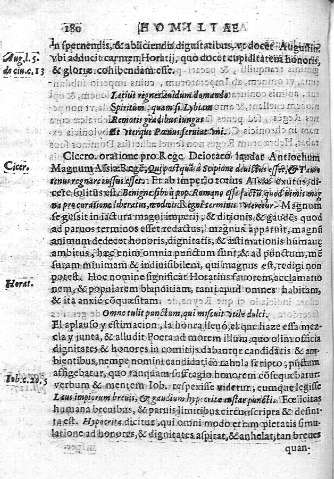 180 HOMILIAE
In spernendis, & abiiciendis dignitatibus, vt docet Augustin.
Aug. l. 5.
vbi adducit carmen Horatij, quo docet cupiditatem honoris,
de ciu. c. 13
& gloriæ cohibendam esse.
Latius regnes auidum domando
Spiritum, quam si Lybiam
Remotis gradibus iungas
Et vterque Pœnus seruiat vni.
Cicer.
Cicero. oratione pro Rege Deiotaro laudat Antiochum
Magnum Asiæ Rege, Qui postquam à Scipione deuictus esset, & Tauro
tenus regnare iussus esset: Et ab imperio totius Asiæ exutus, di-
cere solitus est. Benigne sibi à pop. Romano esse factum quod nimis mag-
na procuratione liberatus, modicis Regni terminis vteretur. Magnum
se gessit in iactura magni imperij, & ditionis, & gaudes quod
ad paruos terminos esset redactus, magnus apparuit, magnus
animum dedecet honoris, dignitatis, & æstimationis humanæ
ambitus, hæc enim omnia punctum sunt, & ad punctum,
suapam minimam & indiuisibilem, qui magnus est, redigi non
potest. Hoc nomine significat Horatius fauorem, acclamatio
Horat.
nem, & popularem blanditiam, tanti apud omnes habitam,
& ita anxiè conquæsitam.
Omne tulit punctum, qui miscuit vtile dulci.
El aplauso y estimacion, la honra lleuo, el que haze essa mez-
cla y junta, & alludit Poeta ad morem illum, quo olim officia
dignitates & honores in comitijs dabantur candidatis &
ambientibus, nempe nomini candidati in tabula scripto, punctum
affigebatur, quo ranquam suffragio honorem cosequebatur
Iob. c. 20, 5
verbum & mentem Iob. respexisse videtur, cumque legisse
Laus impiorum breuis, & gaudium hypocritæ instar puncti. Fœlicitas
humana breuibus, & paruis limitibus circunscripta & defini-
ta est. Hypocrita dicitur, qui omni modo etiam pietatis simu-
latione ad honores, & dignitates aspirat, & anhelat, tan breues
quan-